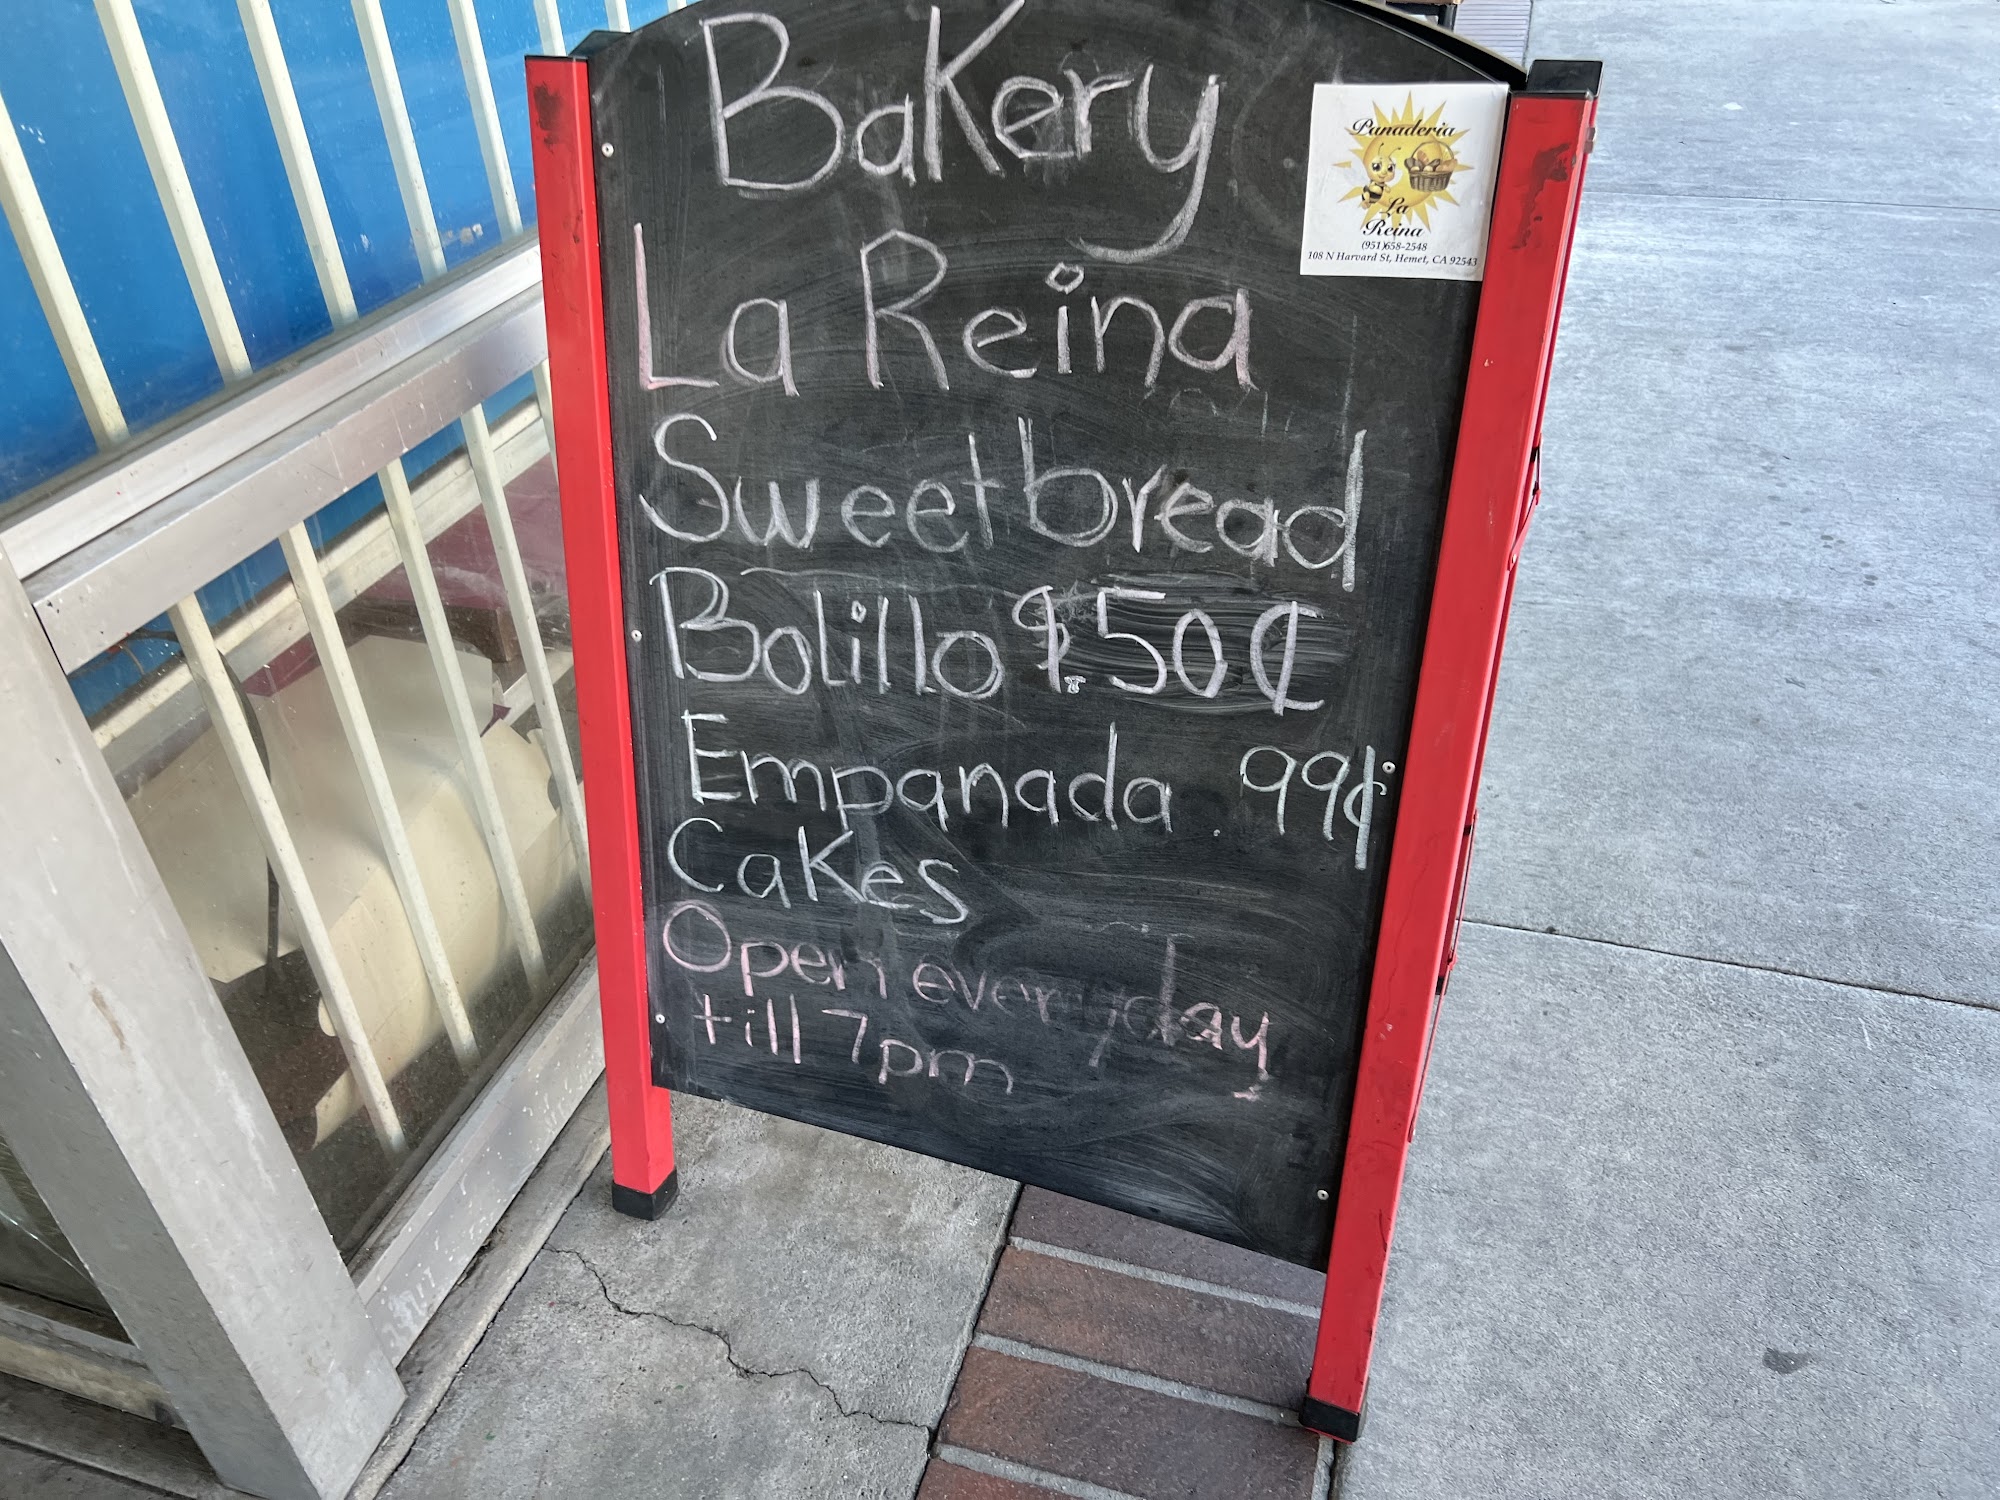 Bakery
La Reina
Sweetbread
Bolillo $.50¢
Empanada .99¢
Cakes
Open everyday
till 7pm
Panaderia
La
Reina
(951)658-2548
108 N Harvard St, Hemet, CA 92543